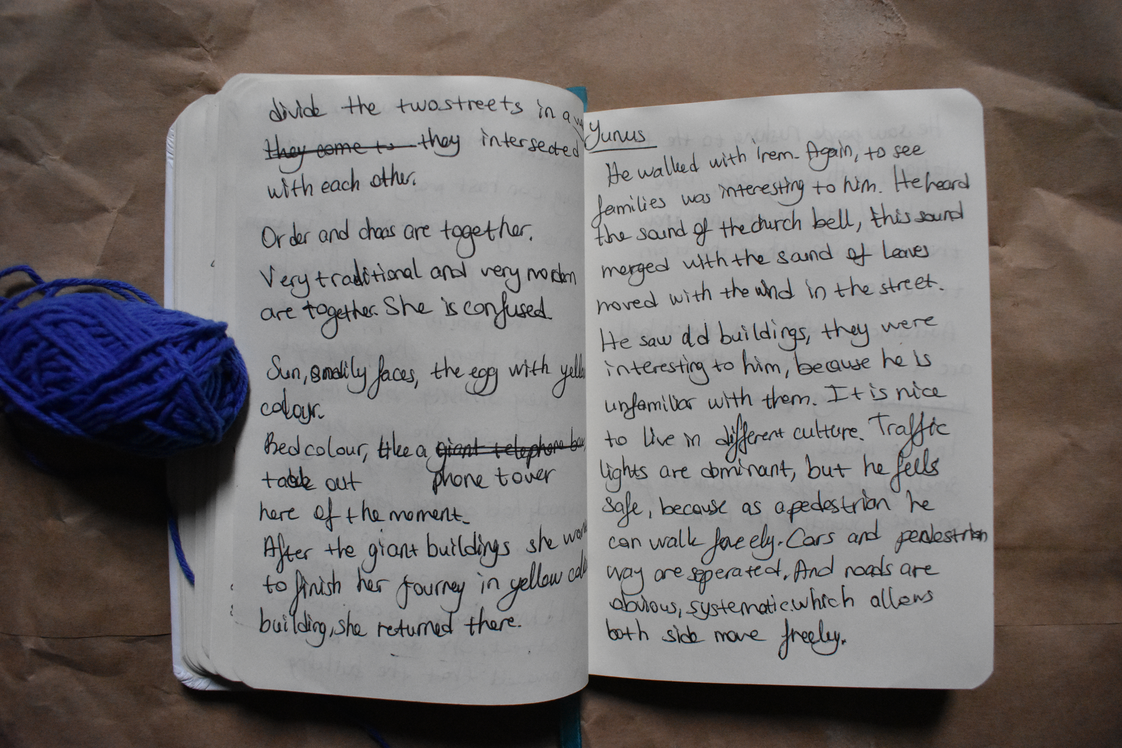 divide the two streets in a
they come to they intersected
with each other.
Order and chaos are together.
Very traditional and very modern
are together. She is confused.
Sun, smaily faces, the egg with yello
colour.
Bedcolour, like a giant telephone
taook out phone tover
here of the moment.
After the giant buildings she
to finish her journey in yellow
building, she returned there.
Yunus
He walked with irem. Again, to see
families was interesting to him. He heard
the sound of the church bell, this sound
merged with the sound of leaves
moved with the wind in the street.
He saw old buildings, they were
interesting to him, because he is
unfamiliar with them. It is nice
to live in different culture. Traffic
lights are dominant, but he fells
safe, because as a pedestrian he
can walk freely. Cars and pendestrian
way are seperated. And roads are
obvious, systematic which allows
both side move freely.